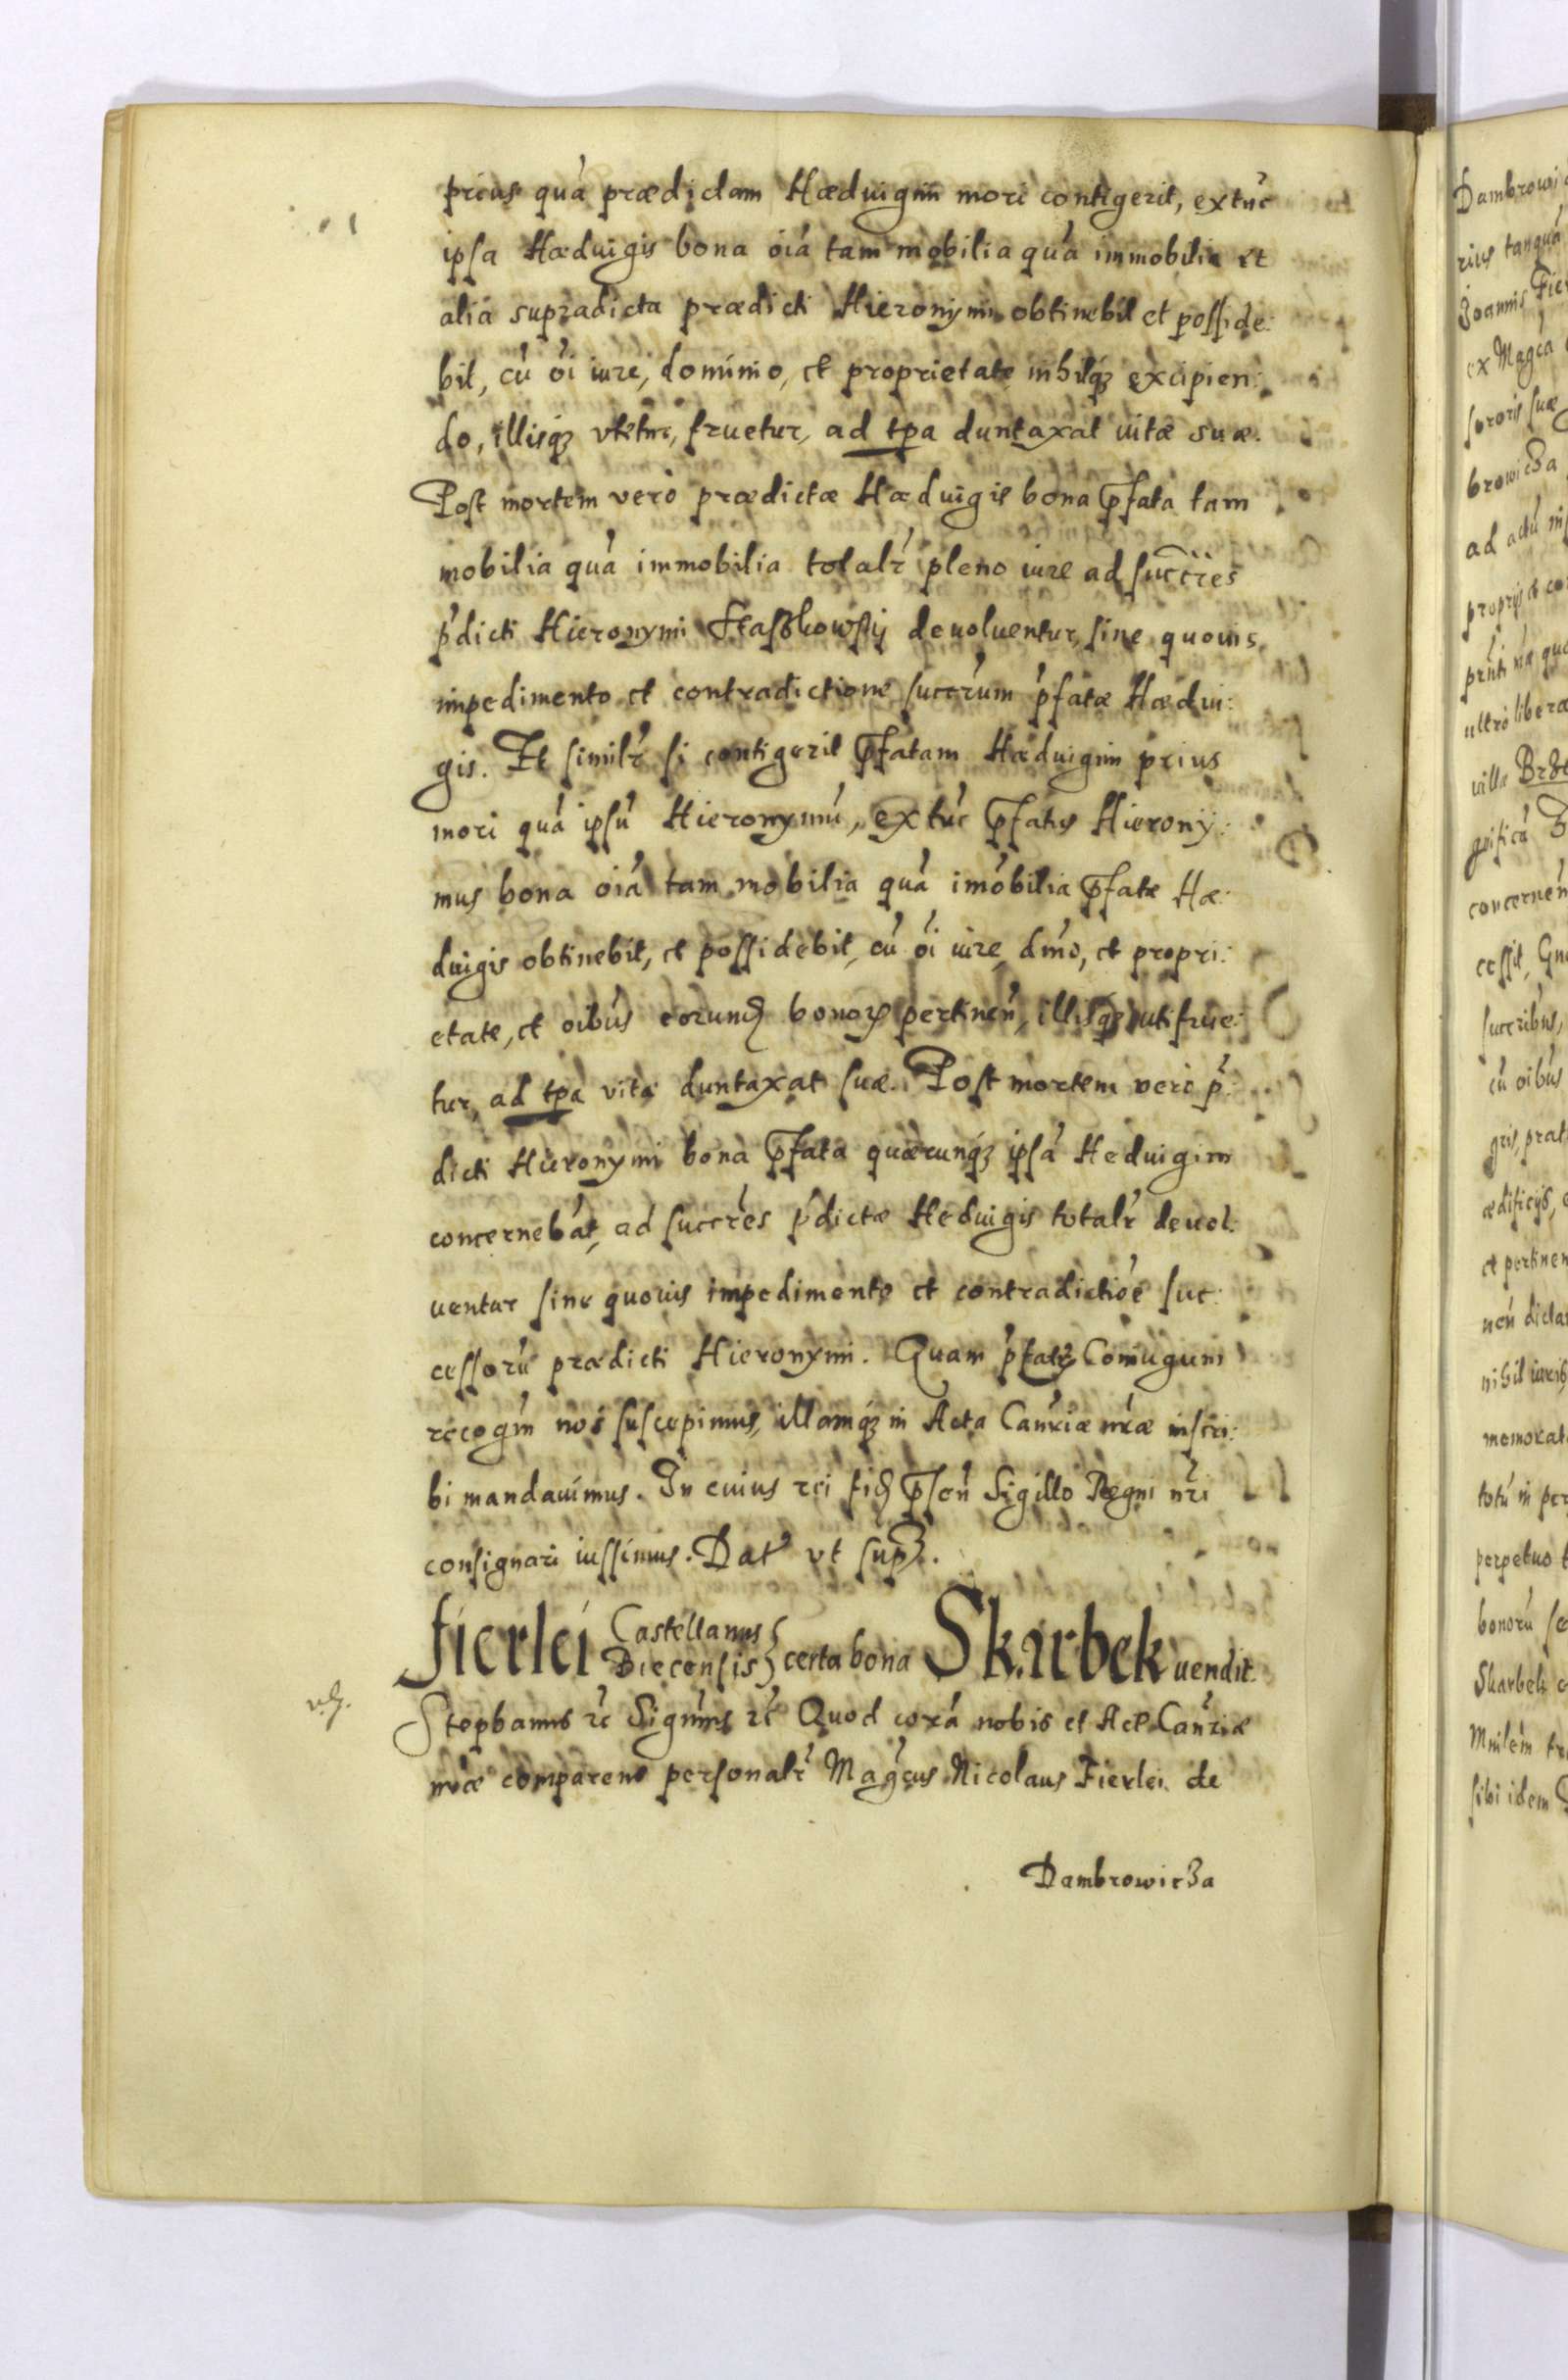 prius quā prædictam Hæduigim mori contigerit, extūc
ipsa Hæduigis bona oīa tam mobilia quā immobilia et
alia supradicta prædicti Hieronymi obtinebit et posside:
bit, cū oī iure, dominio, et proprietate, nihilq₃ excipien:
do, illisq₃ vtetur, fruetur, ad tpa duntaxat uitæ suæ.
Post mortem verò prædictæ Hæduigis bona p̄fata tam
mobilia quā immobilia totalr̄ pleno iure ad succr̄es
p̄dicti Hieronymi deuoluentur, sine quouis
impedimento et contradictione succr̄um p̄fatæ Hædui:
gis. Et similr̄ si contigerit p̄fatam Hæduigim prius
mori quā ipsū Hieronymū, ex tūc p̄fatus Hierony:
mus bona oīa tam mobilia quā imōbilia p̄fatæ Hæ:
duigis obtinebit, et possidebit, cū oī iure, dnīo, et propri:
etate, et oībus eorund bonoꝝ pertineñ, illisq₃ uti frue:
tur, ad tpa vitæ duntaxat suæ. Post mortem verò p̄:
dicti Hieronymi bona p̄fata quæcunq₃ ipsā Heduigim
concernebāt, ad succr̄es p̄dictæ Heduigis totalr̄ deuol:
uentur sine quouis impedimento et contradictiōe suc:
cessorū prædicti Hieronymi. Quam p̄fatoꝝ Coniugum
recogñ nos suscepimus, illamq₃ in Acta Canr̄iæ nr̄æ inscri:
bi mandauimus. In cuius rei fid p̄señ Sigillo Regni nr̄i
consignari iussimus. Dat vt supꝝ.
Fierlei Castellanus Biecensis certa bona Skarbek uendit.
Stephanus ꝛc̄ Signm̄s ꝛc̄ Quod corā nobis et Act Canr̄iæ
nr̄æ comparens personalr̄ Magc̄us Nicolaus Fierlei de
Dambrowicza
Dambrowi
rius tanquā
Joannis Fier
ex Magca
sororis suæ
browicza
ad actū
proprijs et co
ultrò liberæ
villa
concerneñ
cessit,
succribus,
cū oībus
gris, prat
ædificijs,
et pertinen
neñ dicta
nihil iuris
memorat
totū in per
perpetuo
bonorū
Skarbek
sibi idem